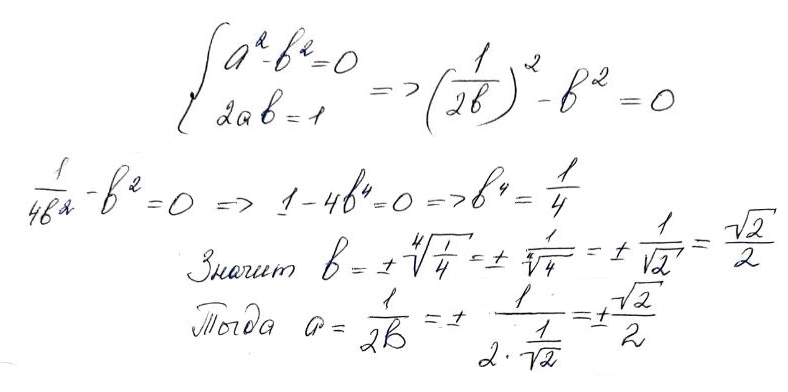 { a² - b² = 0
2ab = 1 => (1/2b)² - b² = 0
1/4b² - b² = 0 => 1 - 4b⁴ = 0 => b⁴ = 1/4
Значит b = ± ∜(1/4) = ± 1/∜4 = ± 1/√2 = √2/2
Тогда a = 1/2b = ± 1/(2 · 1/√2) = ± √2/2